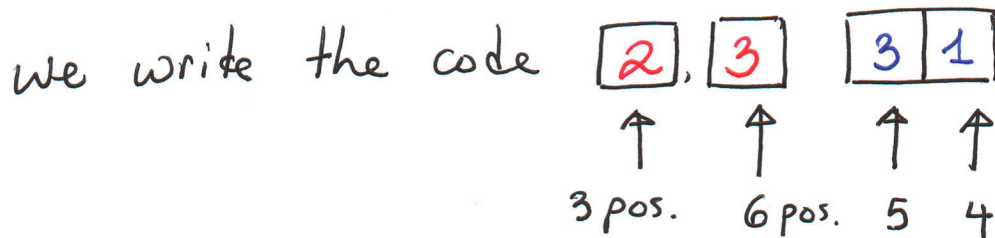 we write the code 2, 3 3 1
3 pos. 6 pos. 5 4